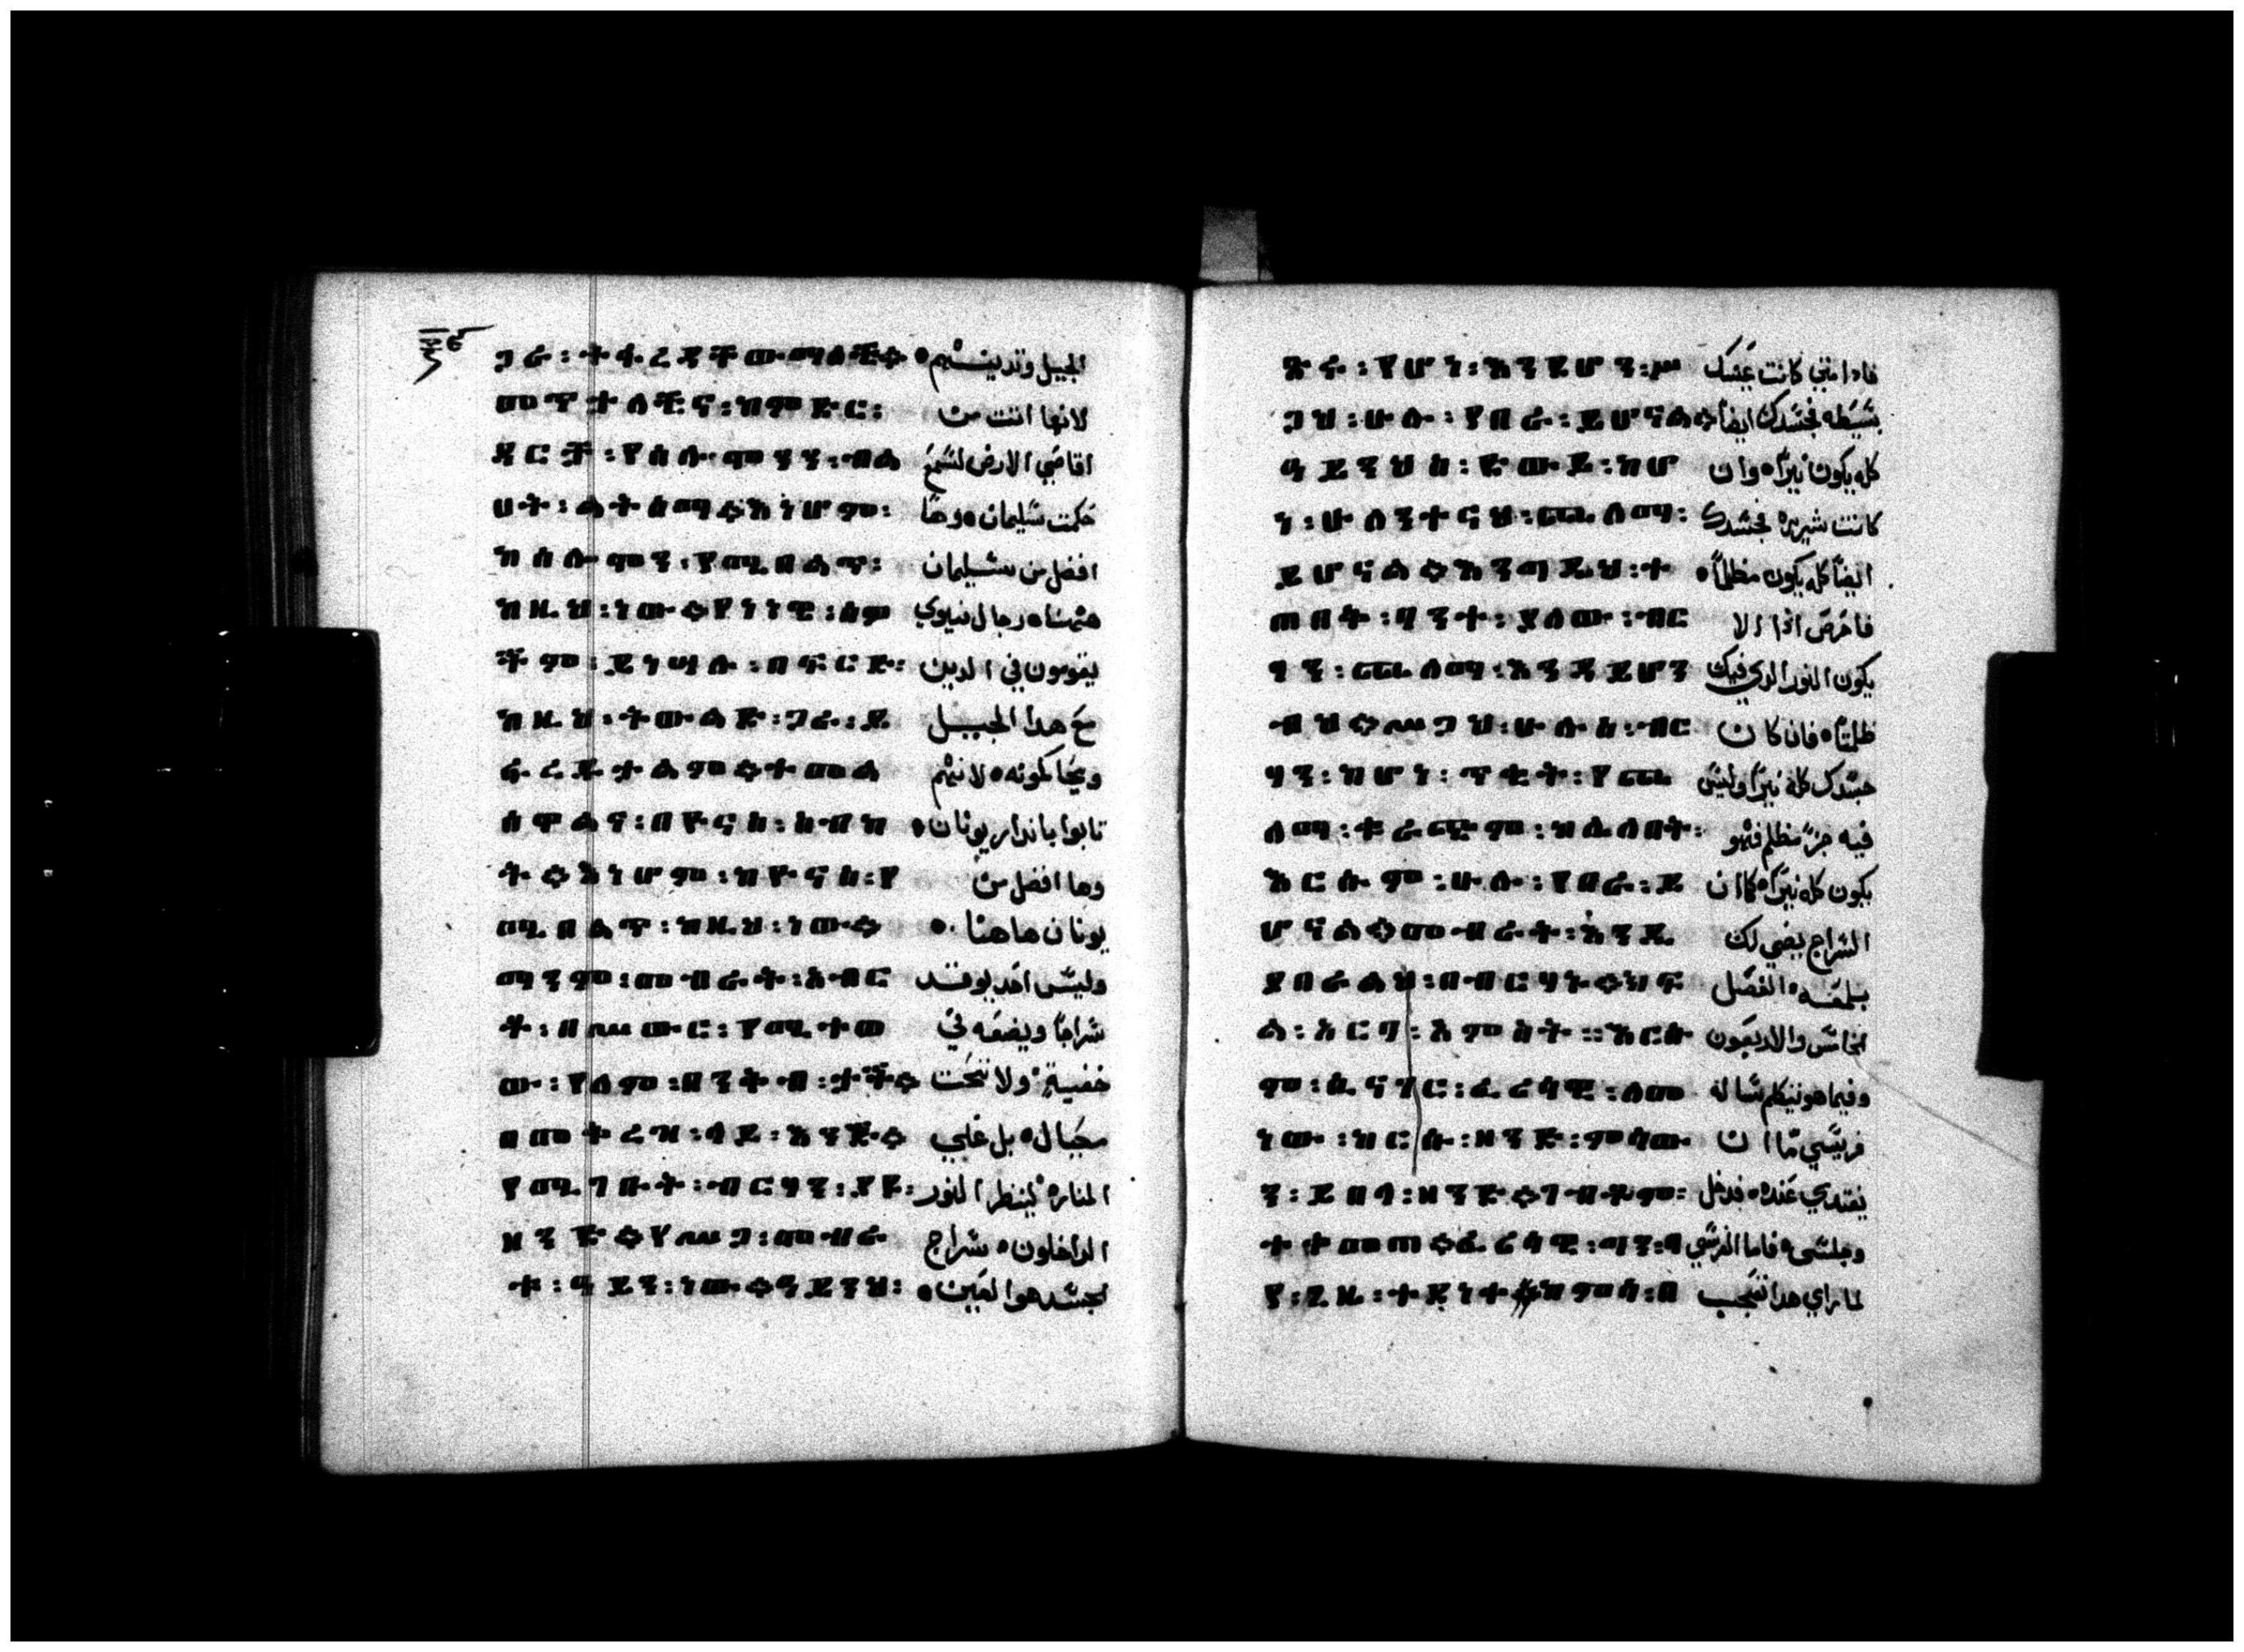 ጋራ ፡ ትፋረዳቸውማለች። الجيل وتدينهم ٥
መጥታለችና ፡ ከምድር ፡ لانها اتت من
ዳርች ፡ የሰሉሞንን ፡ ብል اقاصي الارض لتسمع
ሀት ፡ ልትሰማ። እነሆም ፡ حكمت سليمان ٥ وهنا
ከሰሉሞን ፡ የሚበልጥ ፡ افضل من سليمان
ከዚህ ፡ ነው። የነነዌ ፡ ሰዎ ههنا ٥ رجال نينوي
ችም ፡ ይነሣሉ ፡ በፍርድ ፡ يقومون في الدين
ከዚህ ፡ ትውልድ ፡ ጋራ ፡ ይ مع هدا الجيل
ተመል ويحاكمونه ٥ لانهم
ሰዋልና ፡ በዮናስ ፡ ስብከ تابوا بانذار يونان ٥
ት። እነሆም ፡ ከዮናስ ፡ የ وها افضل من
ሚበልጥ ፡ ከዚህ ፡ ነው። يونان هاهنا ٥
ማንም ፡ መብራት ፡ አብር وليس احد يوقد
ቶ ፡ በሥውር ፡ የሚተወ سراجا ويضعه في
ው ፡ የለም ፡ ታች። خفية ولا تحت
በመቅረዝ ፡ ላይ ፡ እንጅ። مكيال ٥ بل علي
የሚገቡት ፡ ብርሃን ፡ ያዩ ፡ المناره لينظر النور
ዘንድ። የሥጋ ፡ መብራ الداخلون ٥ سراج
ቱ ፡ ዓይን ፡ ነው። ዓይንህ ፡ الجسد هو العين ٥
ቅን ፡ የሆነ ፡ እንደሆን ፡ ሥ فاذا متي كانت عينك
ጋህ ፡ ሁሉ ፡ የበራ ፡ ይሆናል። بسيطه فجسدك ايضا
ዓይንህስ ፡ ከሆ كله يكون نيرا ٥ وان
ነ ፡ ሁለንተናህ ፡ ጨለማ ፡ كانت شريره فجسدك
ይሆናል። እንግዲህ ፡ ተ ايضا كله يكون مظلما ٥
ጠበቅ ፡ ያለው ፡ ብር فاحرص اذا الا
ሃን ፡ ጨለማ ፡ እንዳይሆን يكون النور الدي فيك
ብህ። ሥጋህ ፡ ሁሉስ ፡ ብር ظلمتا ٥ فان كان
ሃን ፡ ከሆነ ፡ ጥቂት ፡ የጨ جسدك كله نيرا وليس
ለማ ፡ ቍራጭም ፡ ከሌለበት ፡ فيه جز مظلم فهو
እርሱም ፡ ሁሉ ፡ የበራ ፡ ይ يكون كله نيرا ٥ كما ان
ሆናል። መብራት ፡ እንዲ السراج يضي لك
ያበራልህ ፡ በብርሃኑ። ክፍ بلمعه ٥ الفصل
ል ፡ አርባ ፡ አምስት ። እርሱ الخامس والاربعون
ም ፡ ሲናገር ፡ ፈሪሳዊ ፡ ለመ وفيما هو يتكلم ساله
ነው ፡ ከርሱ ፡ ዘንድ ፡ ምሳው فريسي ما ان
ን ፡ ይበላ ፡ ዘንድ። ገብቶም ፡ يتغدي عنده ٥ فدخل
ተቀመጠ። ፈሪሳዊ ፡ ግን ፡ ባ وجلس ٥ فاما الفريسي
የ ፡ ጊዜ ፡ ተደነቀ ከምሳ ፡ በ لما راي هدا تعجب